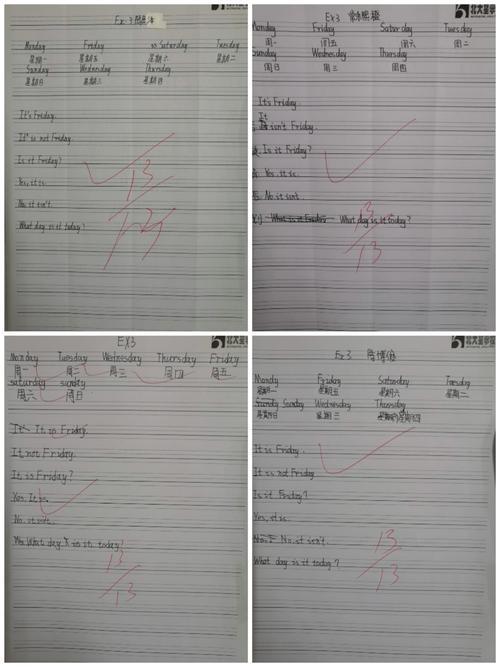 Ex.3
Monday Friday Saturday Tuesday
星期一 星期五 星期六 星期二
Sunday Wednesday Thursday
星期日 星期三 星期四
It's Friday.
It is not Friday.
Is it Friday?
Yes, it is.
No, it isn't.
What day is it today?
13
13
Ex3
Monday Friday Saturday Tuesday
周一 周五 周六 周二
Sunday Wednesday Thursday
周日 周三 周四
It's Friday.
It
isn't Friday.
Is it Friday?
Yes. it is.
No. it isn't.
What is it Friday What day is it today?
13
13
北大星学校
EX3
Monday Tuesday Wednesday Thursday Friday
周一 周二 周三 周四 周五
saturday sunday
周六 周日
It is Friday.
It not Friday.
It is Friday?
Yes. It is.
No. it isn't.
What day is it today?
13
13
北大星学校
Ex.3
Monday Friday Saturday Tuesday
星期一 星期五 星期六 星期二
Sunday Sunday Wednesday Thursday
星期日 星期三 星期四
It is Friday.
It is not Friday
Is it Friday?
Yes, it is.
No. it isn't.
What day is it today?
13
13